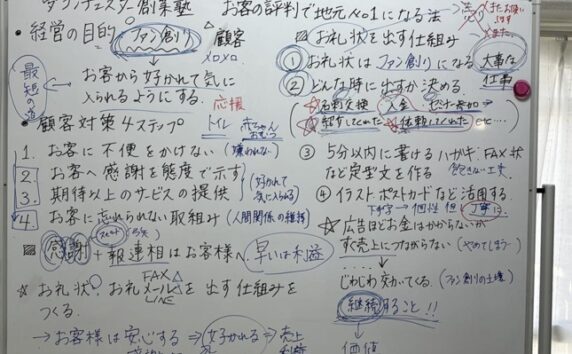 ランチェスター創業塾 お客の評判で地元No1になる法
・経営の目的 ファン創り 顧客
メロメロ
最短の道
お客から好かれて気に
入られるようにする。 応援
・顧客対策4ステップ トイレ 赤ちゃん
1. お客に不便をかけない(嫌われない)
2. お客へ感謝を態度で示す
3. 期待以上のサービスの提供
好かれて
気に入られる
4. お客に忘れられない取組み(人間関係の維持)
感謝 + 報連相はお客様へ 早いは利益
FAX
☆ お礼状、お礼メールを出す仕組みを
LINE
つくる。
→お客様は安心する→好かれる→売上
お礼状を出す仕組み
① お礼状はファン創りになる大事な
仕事
② どんな時に出すか決める。
名刺交換 入金 セミナー参加
紹介してくれた 依頼してくれた
③ 5分以内に書けるハガキ、FAX状
など定型文を作る
④ イラスト、ポストカードなど活用する
下手字→個性 但 丁寧に
☆広告ほどお金はかからないが
すぐ売上につながらない(やめてしまう)
じわじわ効いてくる。(ファン創りの土壌)
継続すること!!
価値